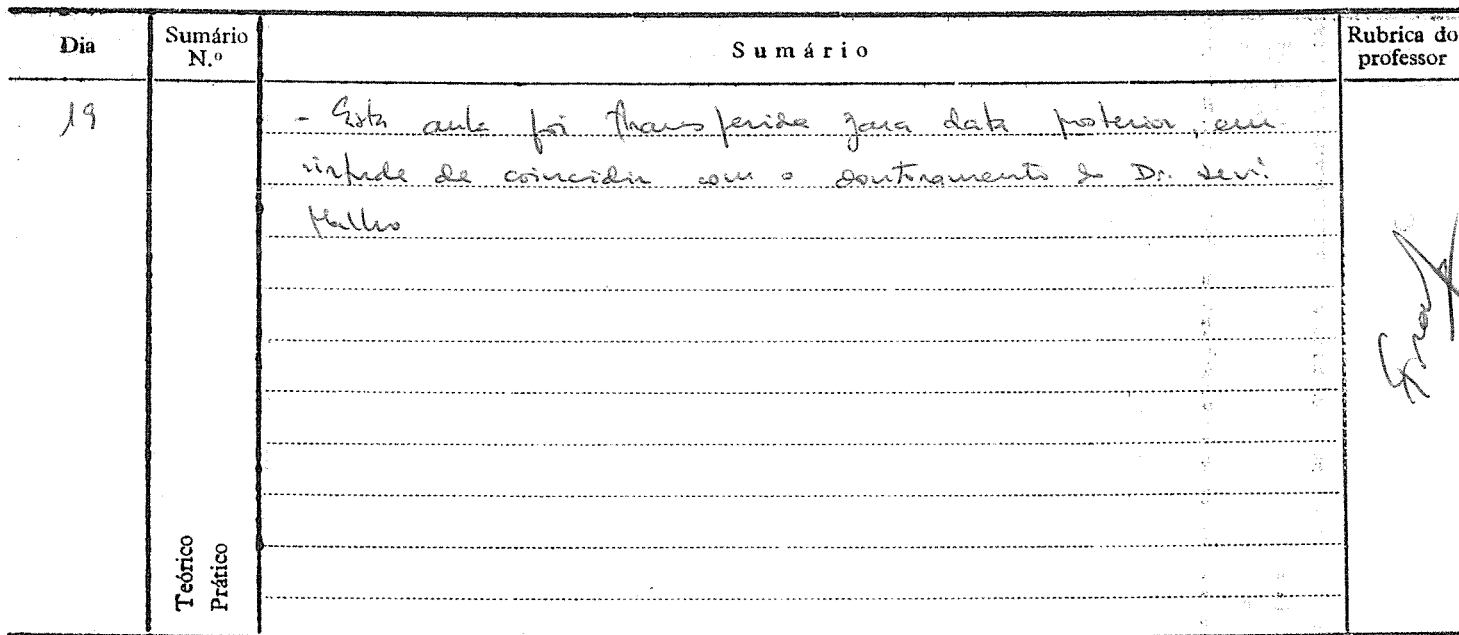 Dia
Sumário
N.º
Sumário
Rubrica do
professor
19
- Esta aula foi transferida para data posterior, em
virtude de coincidir com o doutoramento do Dr. Levi
Malho
Teórico
Prático